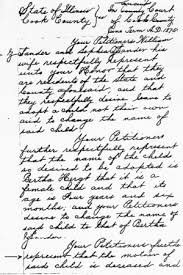 State of Illinois } In County Court
Cook County } ss of Cook County
June Term A.D. 1870
Your Petitioners William
G. Zander and Sophie Zander his
wife respectfully represent
unto your Honor that they
are residents of the State and
county aforesaid, and that
they respectfully desire leave to
adopt a child not their own
and to change the name of
said child
Your Petitioners
further respectfully represent
that the name of the child
so desired to be adopted is
Bertha, that it is a
female child and that its
age is four years and six
months, and your Petitioners
desire to change the name of
said child to that of Bertha
Zander.
Your Petitioners further
represent that the mother of
said child is deceased and